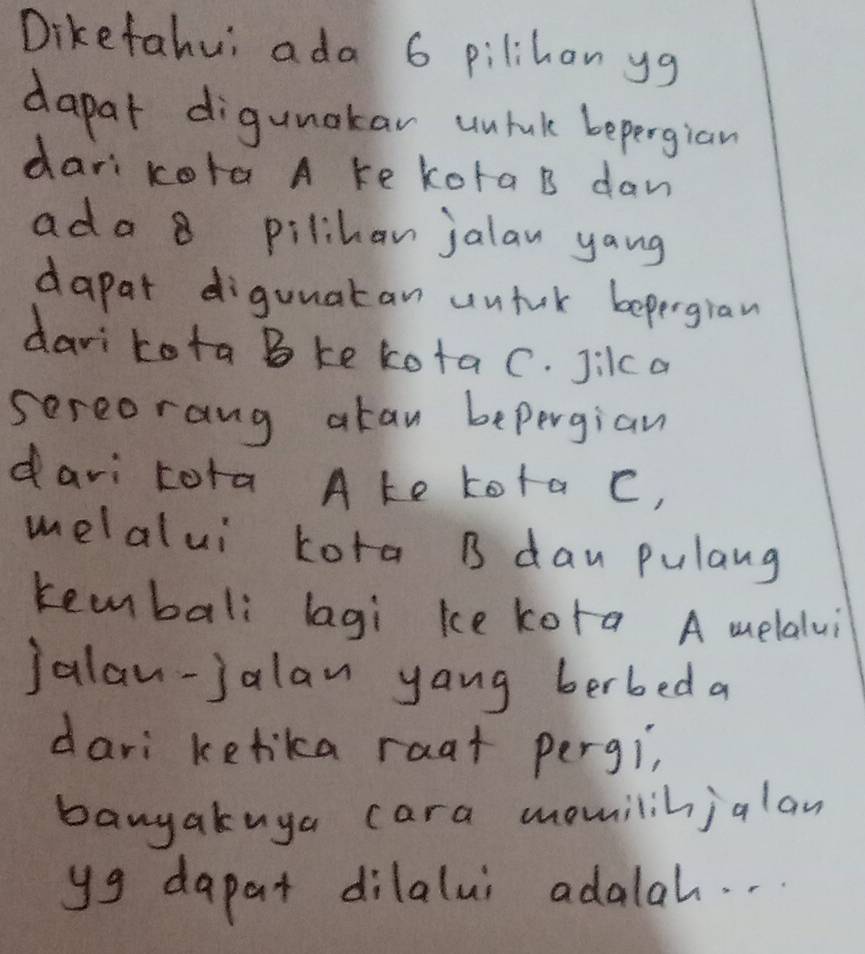 Diketahui ada 6 pilihan yg
dapat digunakan untuk bepergian
dari kota A ke kota B dan
ada 8 pilihan jalan yang
dapat digunakan untuk bepergian
dari kota B ke kota C. Jika
seseorang akan bepergian
dari kota A ke kota C,
melalui kota B dan pulang
kembali lagi ke kota A melalui
jalan-jalan yang berbeda
dari ketika saat pergi,
banyaknya cara memilih jalan
yg dapat dilalui adalah...